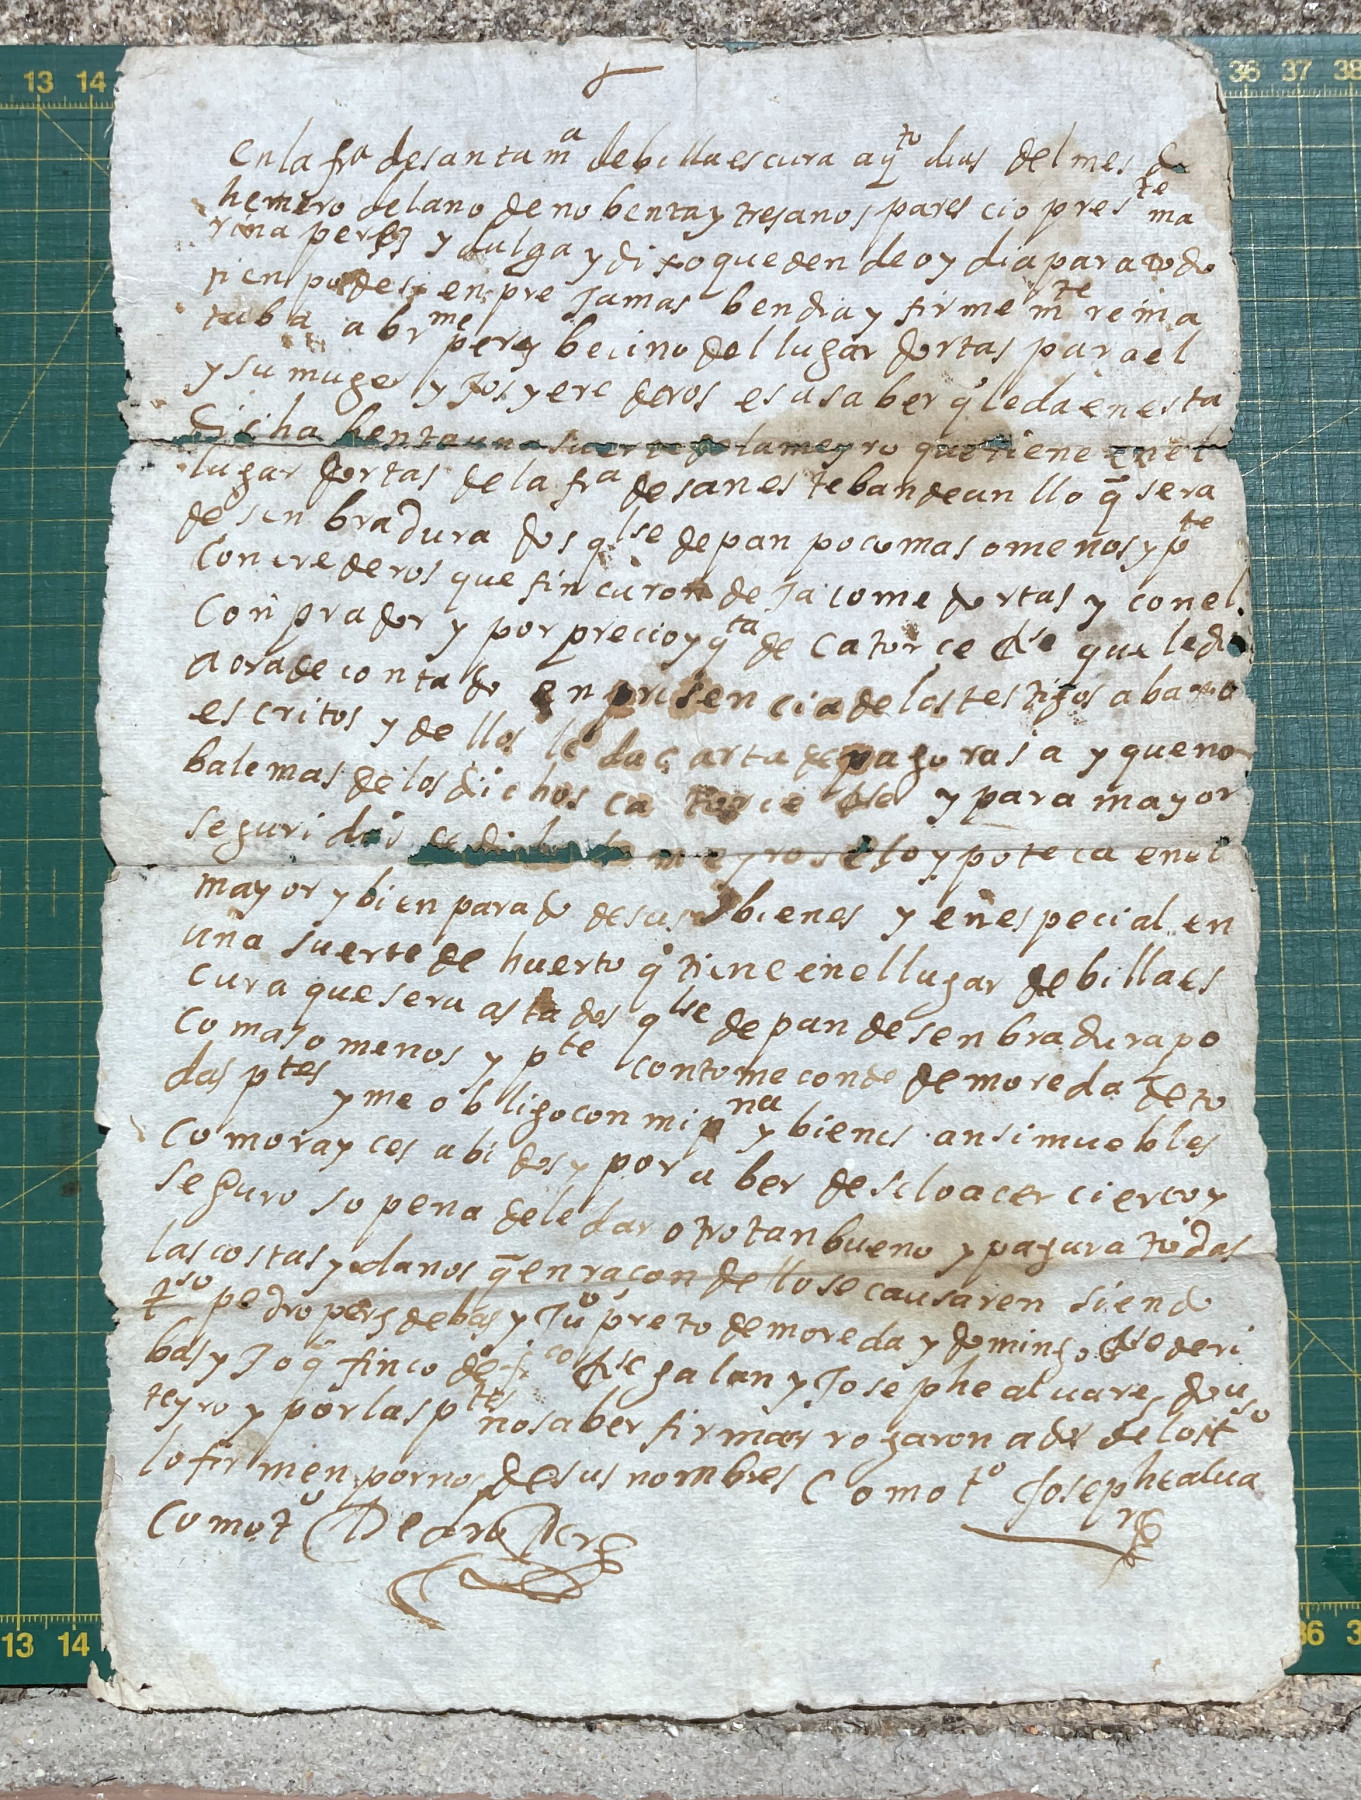 en la fra de santa ma de billaescura a qto dias del mes de
henero del ano de nobenta y tres anos parescio preste ma
rina perez y dulga y dixo que dende oy dia para todo
tienpo de sienpre Jamas bendia y firmemte rema
taba a brme perez becino del lugar dortas para el
y su muger y Jos y ere deros es a saber q le da en esta
dicha benta una suerte de lameyro que tiene en el
lugar dortas de la fra de san esteban de anllo q sera
de senbradura dos qlse de pan poco mas o menos y pte
con erederos que fincaron de Jacome dortas y con el
conprador y por precio y qta de catorce dse que le dio
aora de contado en presencia de los testigos abaxo
escritos y de llos le da carta de pago rasa y que no
bale mas de los dichos catorce dse y para mayor
seguridad de dicho lameyro se lo ypoteca en el
mayor y bien parado de sus bienes y en especial en
una suerte de huerto q tiene en el lugar de billaes
cura que sera asta dos qlse de pan de senbradura po
co mas o menos y pte con tome conde de moreda de to
das ptes y me obligo con mi pna y bienes ansi muebles
como rayces abidos y por aber de se lo acer cierto y
seguro so pena de le dar otro tan bueno y pagara todas
las costas y danos q en raçon de llo se causaren siendo
tso pedro perz de bas y Juo preto de moreda y domingo dse de ri
bas y Jo q finco de fco dse galan y Josephe aluarez dou
teyro y por las ptes no saber firmar rogaron a dos de los tso
lo firmen por nos de sus nombres como to Josephe alua
rz
como to Pedro Perz